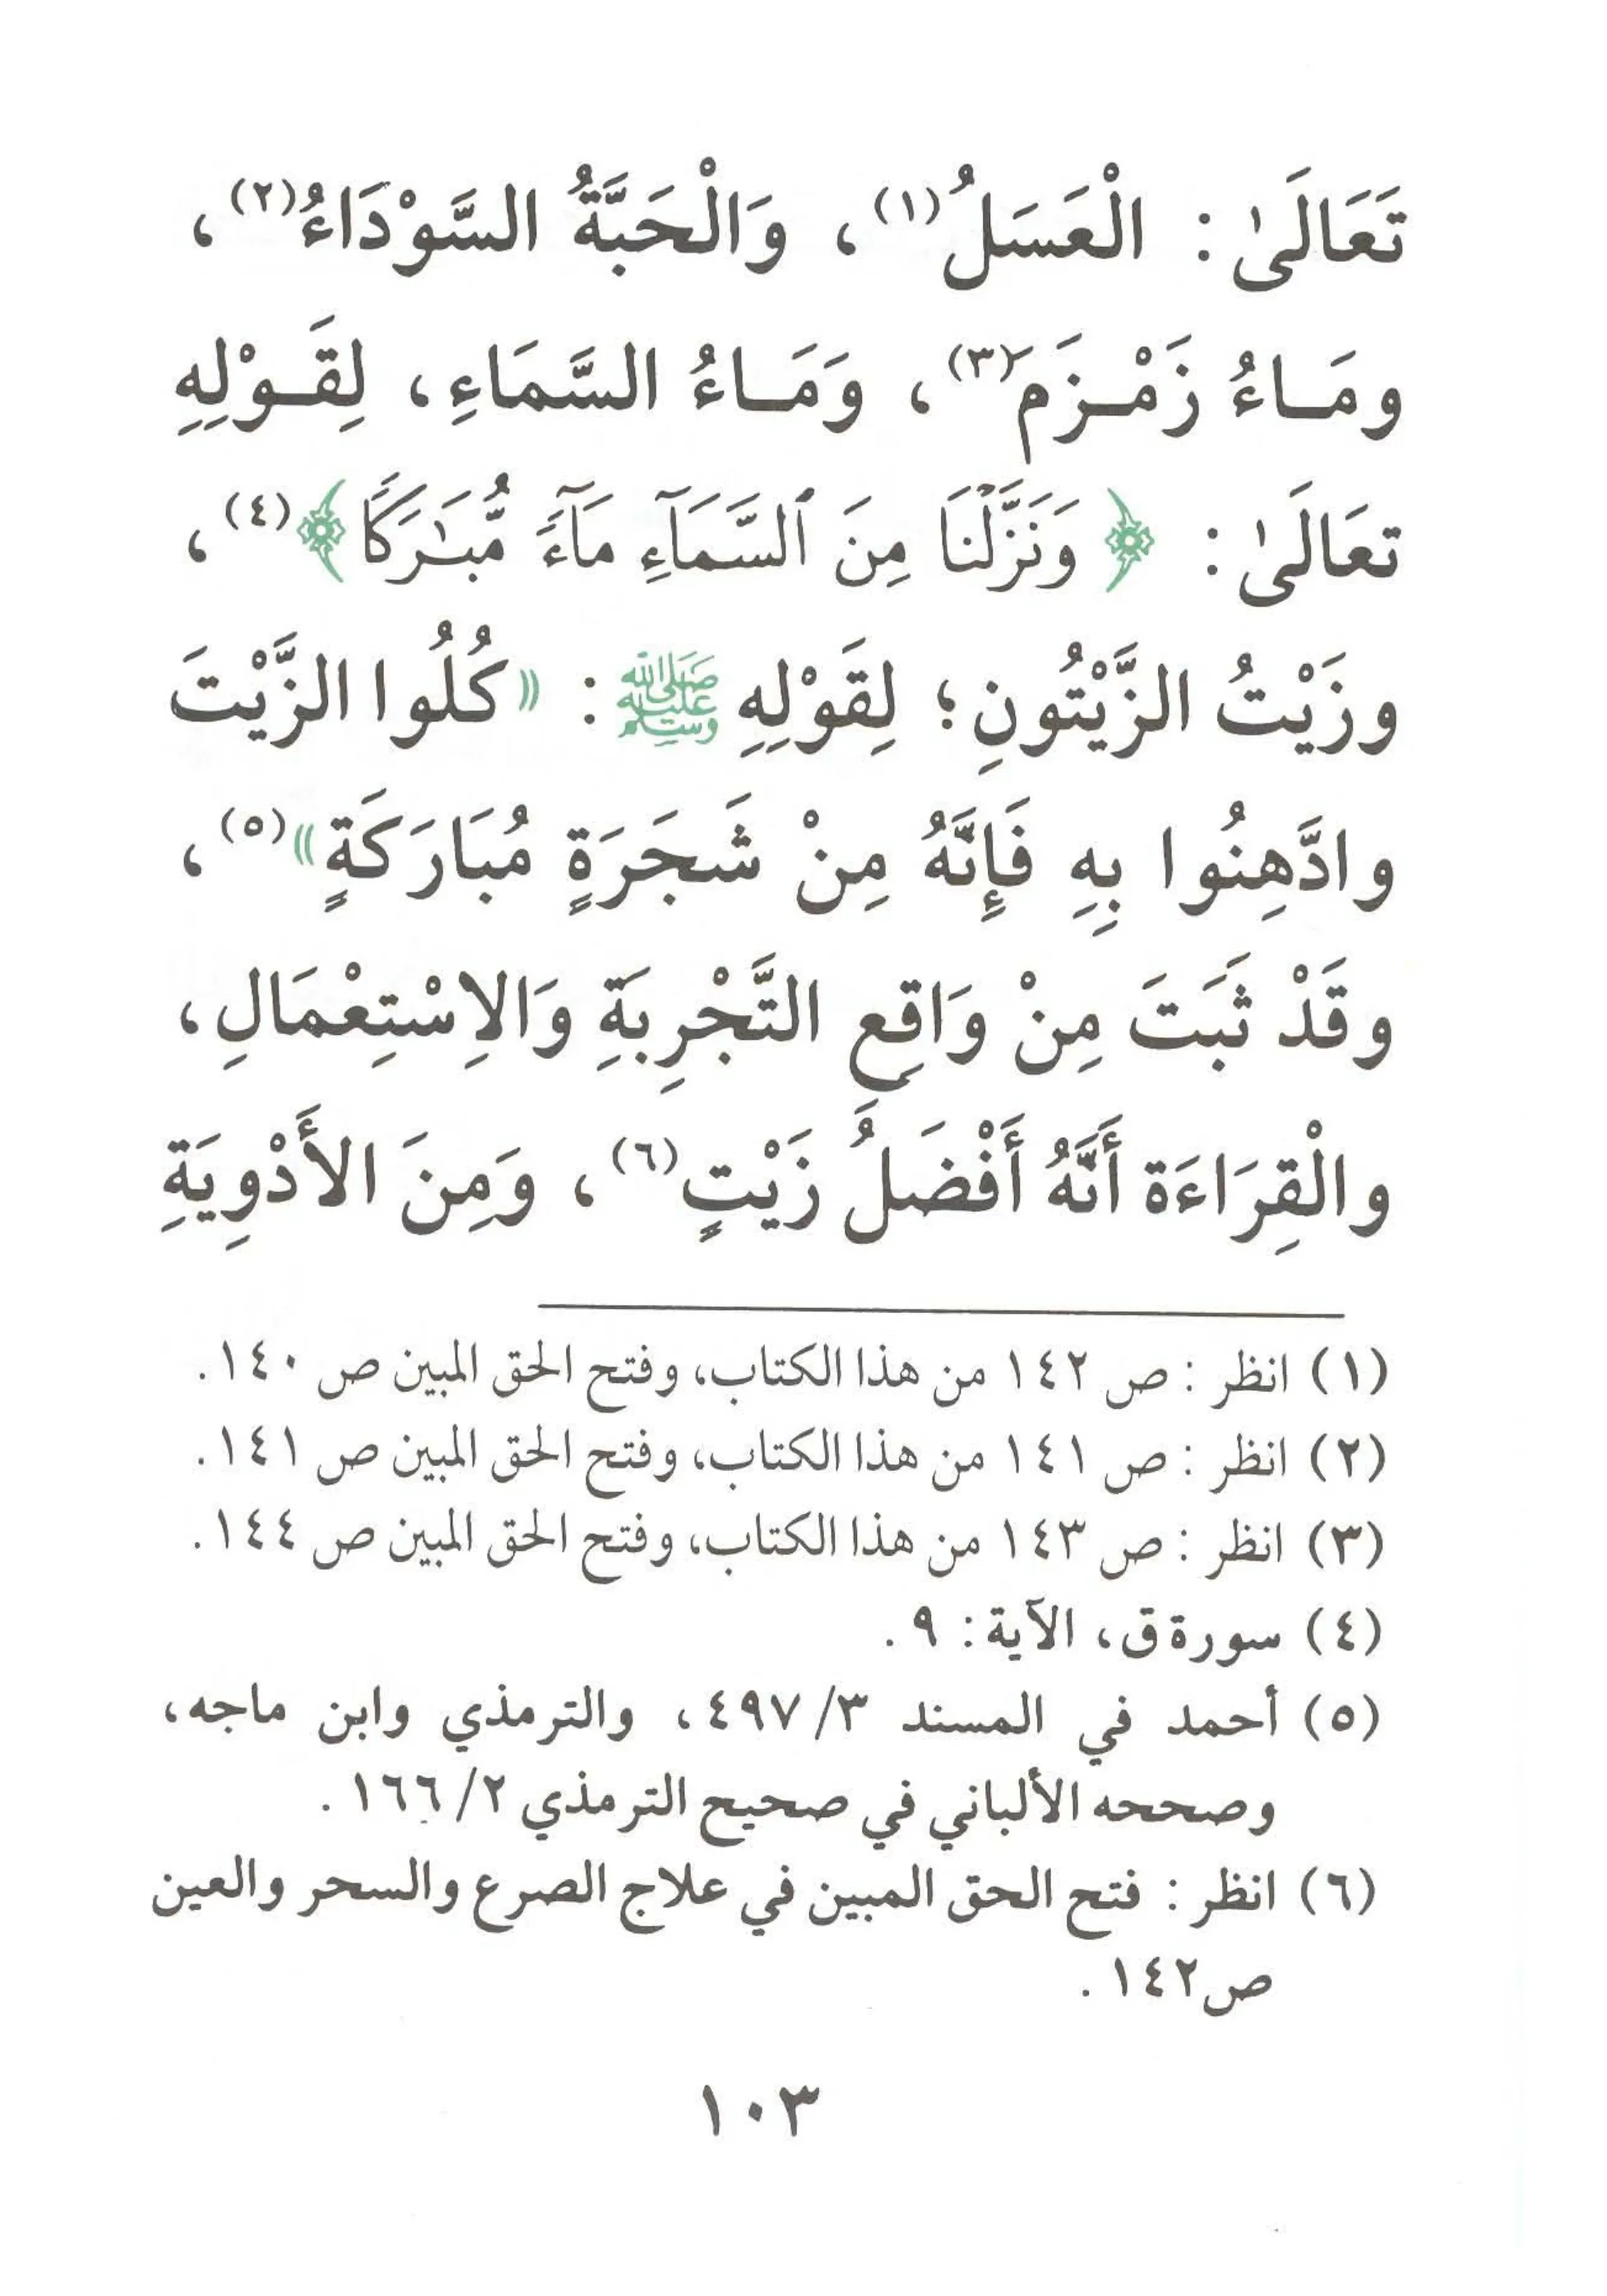 تَعَالَىٰ: الْعَسَلُ(١)، وَالْحَبَّةُ السَّوْدَاءُ(٢)،
ومَاءُ زَمْزَمَ(٣)، وَمَاءُ السَّمَاءِ، لِقَوْلِهِ
تعَالَىٰ: ﴿وَنَزَّلْنَا مِنَ ٱلسَّمَآءِ مَآءً مُّبَٰرَكًا﴾(٤)،
وزَيْتُ الزَّيْتُونِ؛ لِقَوْلِهِ ﷺ: «كُلُوا الزَّيْتَ
وادَّهِنُوا بِهِ فَإِنَّهُ مِنْ شَجَرَةٍ مُبَارَكَةٍ»(٥)،
وقَدْ ثَبَتَ مِنْ وَاقِعِ التَّجْرِبَةِ وَالاِسْتِعْمَالِ،
والْقِرَاءَة أَنَّهُ أَفْضَلُ زَيْتٍ(٦)، وَمِنَ الأَدْوِيَةِ
(١) انظر: ص ١٤٢ من هذا الكتاب، وفتح الحق المبين ص ١٤٠.
(٢) انظر: ص ١٤١ من هذا الكتاب، وفتح الحق المبين ص ١٤١.
(٣) انظر: ص ١٤٣ من هذا الكتاب، وفتح الحق المبين ص ١٤٤.
(٤) سورة ق، الآية: ٩.
(٥) أحمد في المسند ٣/ ٤٩٧، والترمذي وابن ماجه،
وصححه الألباني في صحيح الترمذي ٢/ ١٦٦.
(٦) انظر: فتح الحق المبين في علاج الصرع والسحر والعين
ص١٤٢.
١٠٣